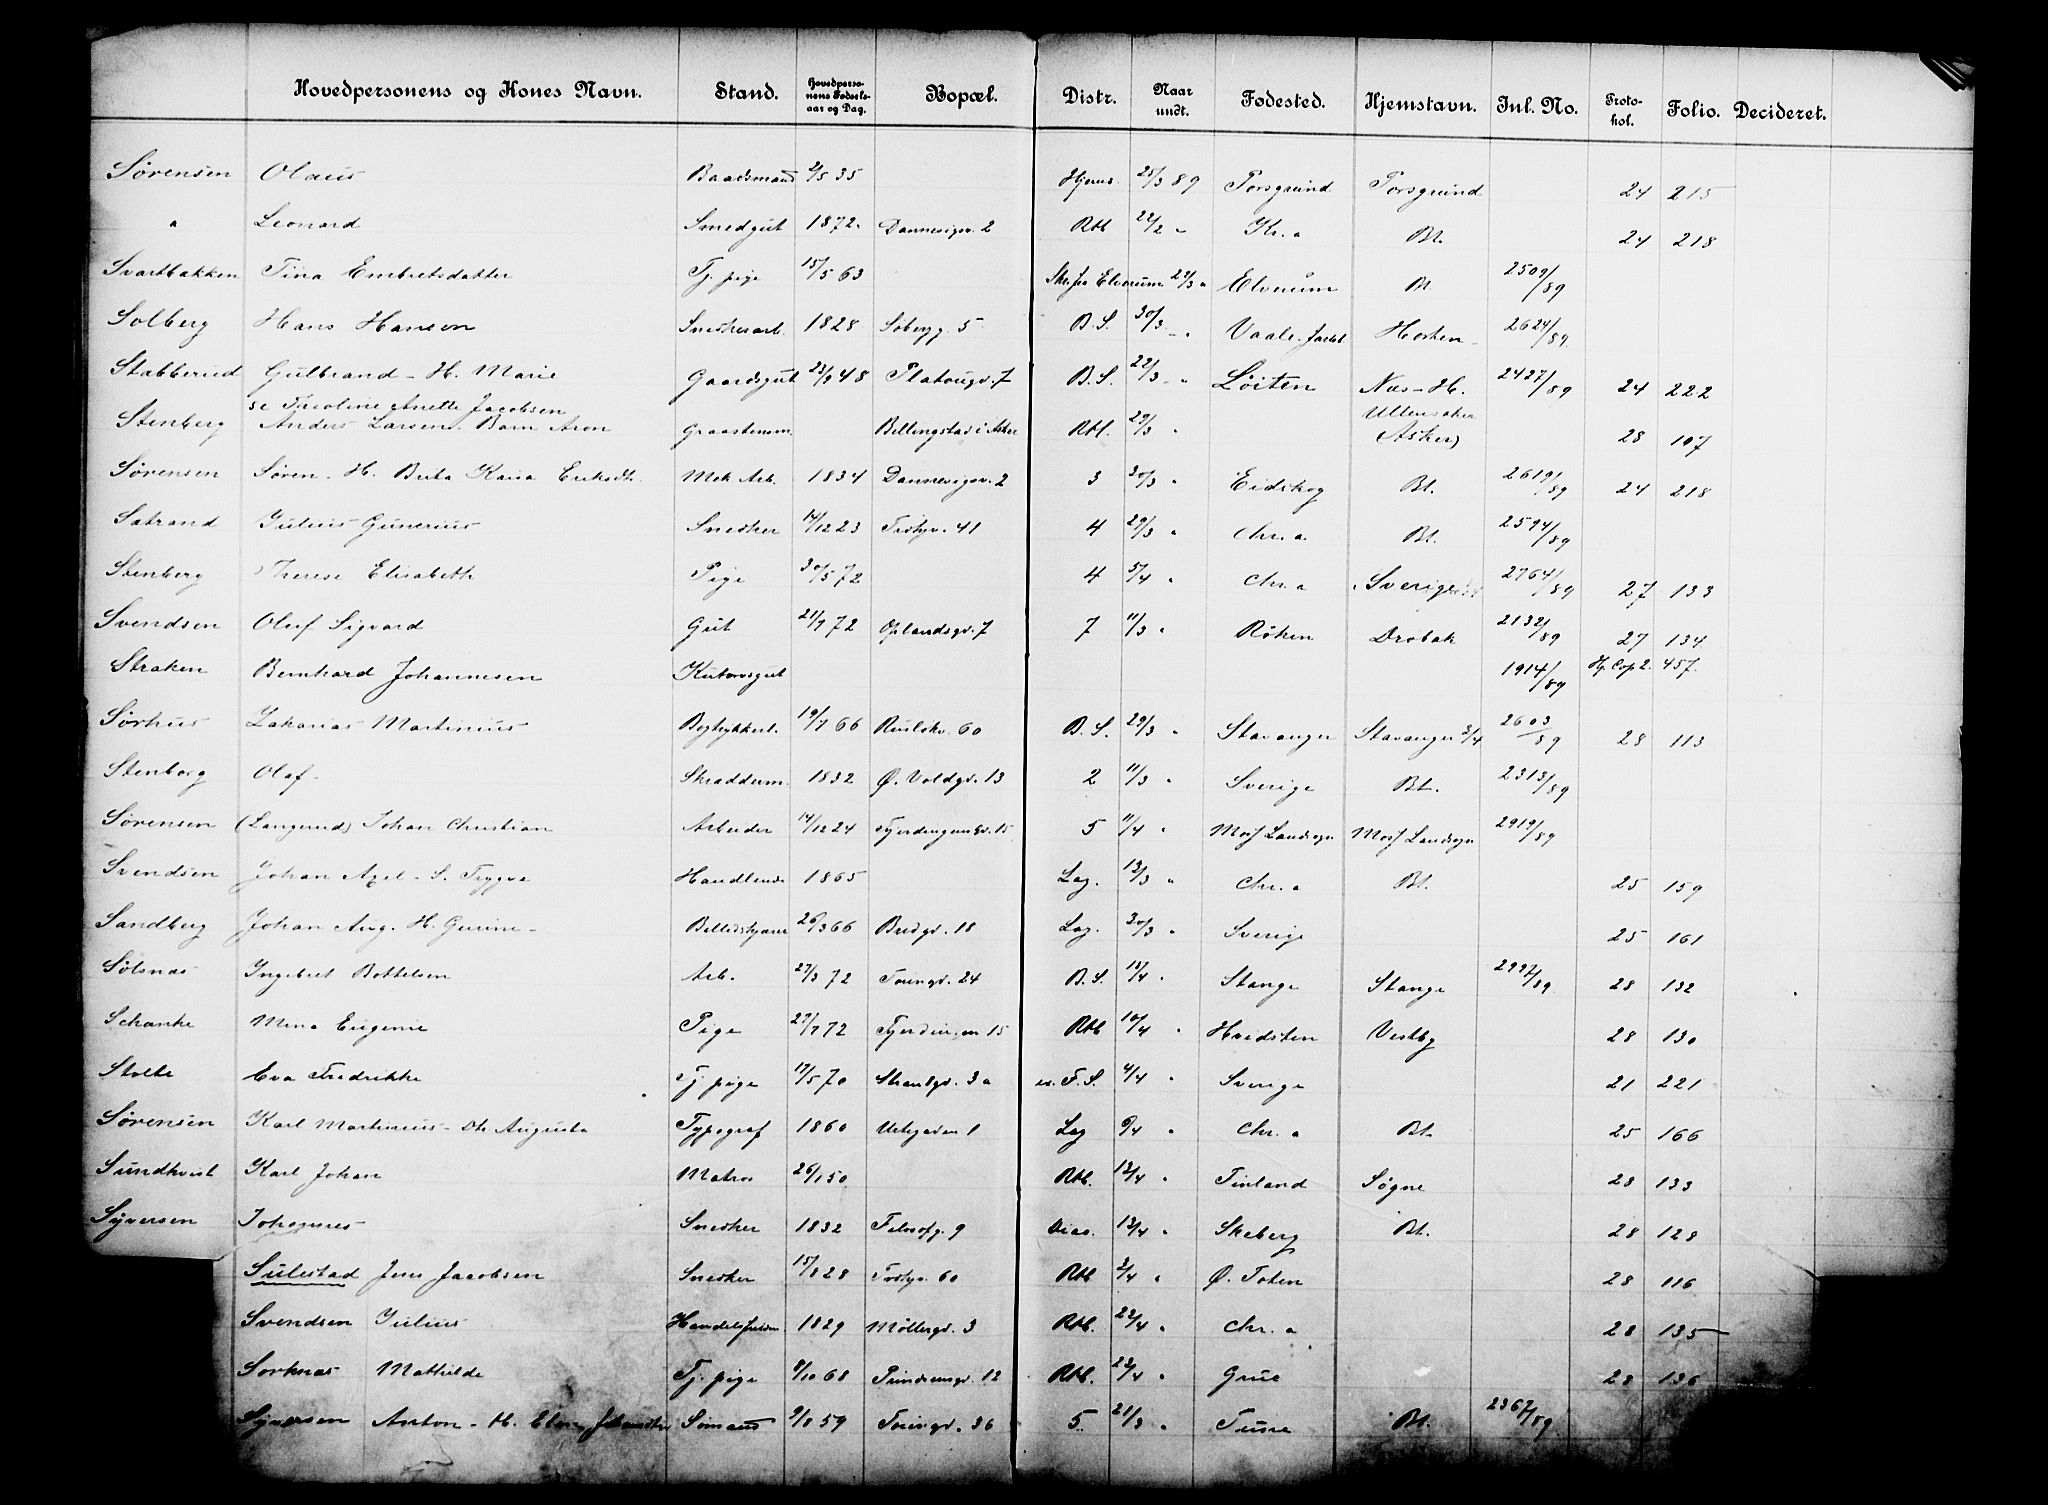 Hovedpersonens og Kones Navn. Stand. Hovedpersonens Fødselsaar og Dag. Bopæl. Distr. Naar undt. Fødested. Hjemstavn. Inl. No. Protokol. Folio. Decideret.
Sørensen Olaus Baadsmand 2/5 35 Hjems. 25/3 89 Porsgrund Porsgrund 24 215
" Leonard Smedgut 1872. Dannevigsv. 2 Rbl 22/2 " Kr.a Bt. 24 218
Svartbakken Tina Embretsdatter Tj. pige 15/5 63 Skr. fra Elverum " Elverum Bt. 2509/89
Solberg Hans Hansen Snedkerarb. 1828 Søbygg. 5 B.S. 30/3 " Vaale Horten 2624/89
Stabberud Gulbrand - H. Marie Gaardsgut 23/9 48 Platousg. 7 B.S. 22/3 " Løiten Næs - H. 2427/89 24 222
Se Theoline Anette Jacobsen Ullensaker
Stenberg Anders Larsen. Barn Aron Graastensm. Billingstad i Asker Rbl. 29/3 " (Asker) 28 107
Sørensen Søren - H. Brita Kaisa Eriksdtr. Mek Arb. 1834 Dannevigsv. 2 3 30/3 " Eidskog Bt. 2619/89 24 218
Satrand Julius Gunerius Snedker 14/12 23 Toftegv. 41 4 29/3 " Chr.a. Bt. 2594/89
Stenberg Therese Elisabeth Pige 30/5 72 4 5/4 " Chr.a Sverige 2764/89 27 133
Svendsen Oluf Sigvard Gut 21/9 72 Oplandsgv. 7 7 11/3 " Røken Drøbak 2132/89 27 134
Straken Bernhard Johannesen 1914/89 Hj. Cop 2. 457.
Sørhus Zakarias Martinius Bogtrykkerl. 19/7 66 Ruslökv. 60 B.S. 29/3 " Stavanger Stavanger 3/4 2603/89 28 113
Stenborg Olaf Skrædderm. 1832 Ø. Voldgv. 13 2 11/3 " Sverige Bt. 2313/89
Sørensen (Langerud) Johan Christian Arbeider 14/12 24 Fjerdingengv. 15 5 11/4 " Moss Landsogn Moss Landsogn 2919/89
Svendsen Johan Axel - S. Trygve Handlende 1865 Lag. 13/3 " Chr.a Bt. 25 159
Sandberg Johan Aug. H. Gurine - 26/3 66 Bredgv. 18 Lag. 30/3 " Sverige 25 161
Solsnæs Ingebret Bottelsen Arb. 27/3 72 Toiengv. 24 B.S. 15/4 " Stange Stange 2997/89 28 132
Schanke Mina Eugenie Pige 27/7 72 Fjerdingen 15 Rbl 10/4 " Hvidsten Vestby 28 130
Stolte Eva Fredrikke Tj. pige 17/5 70 Strandgv. 3a F.S. 4/4 " Sverige 21 221
Sørensen Karl Martinius - Dtr Augusta Typograf 1860 Urtegaden 1 Lag 6/4 " Chr.a Bt. 25 166
Sundkvist Karl Johan Matros 26/1 50 Rbl. 12/4 " Finland Søgne 28 133
Syversen Johannes Snedker 1832 Filosofg. 9 Diac. 13/4 " Skeberg Bt. 28 128
Sulestad Jens Jacobsen Snedker 15/8 28 Toftegv. 60 Rbl 2/4 " Ø. Toten 28 116
Svendsen Julius 1829 Møllergd. 3 Rbl. 22/4 " Chr.a 28 135
Sorknæs Mathilde Tj. pige 8/10 68 12 Rbl. 23/4 " Grue 28 136
Syversen Anton - H. Elen Sømand 9/8 59 Toiengv. 36 5 21/3 " Tune Bt. 2367/89